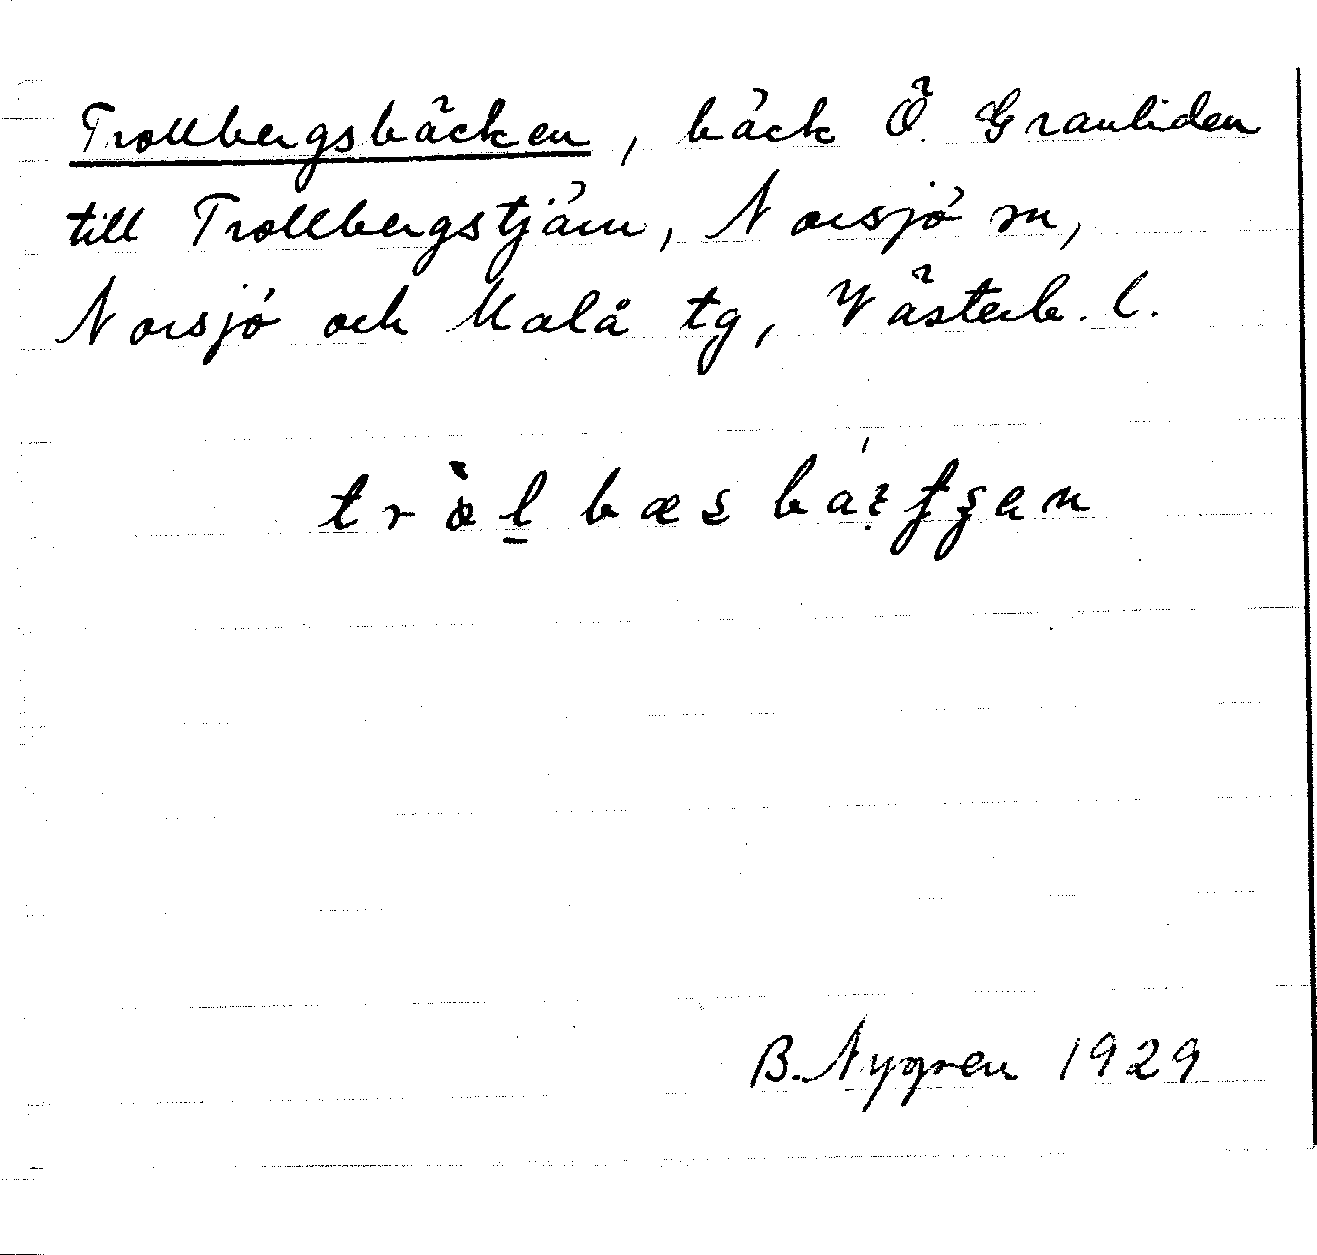 Trollbergsbäcken, bäck Ö. Granliden
till Trollbergstjärn, Norsjö sn,
Norsjö och Malå tg, Västerb. l.
B. Nygren 1929